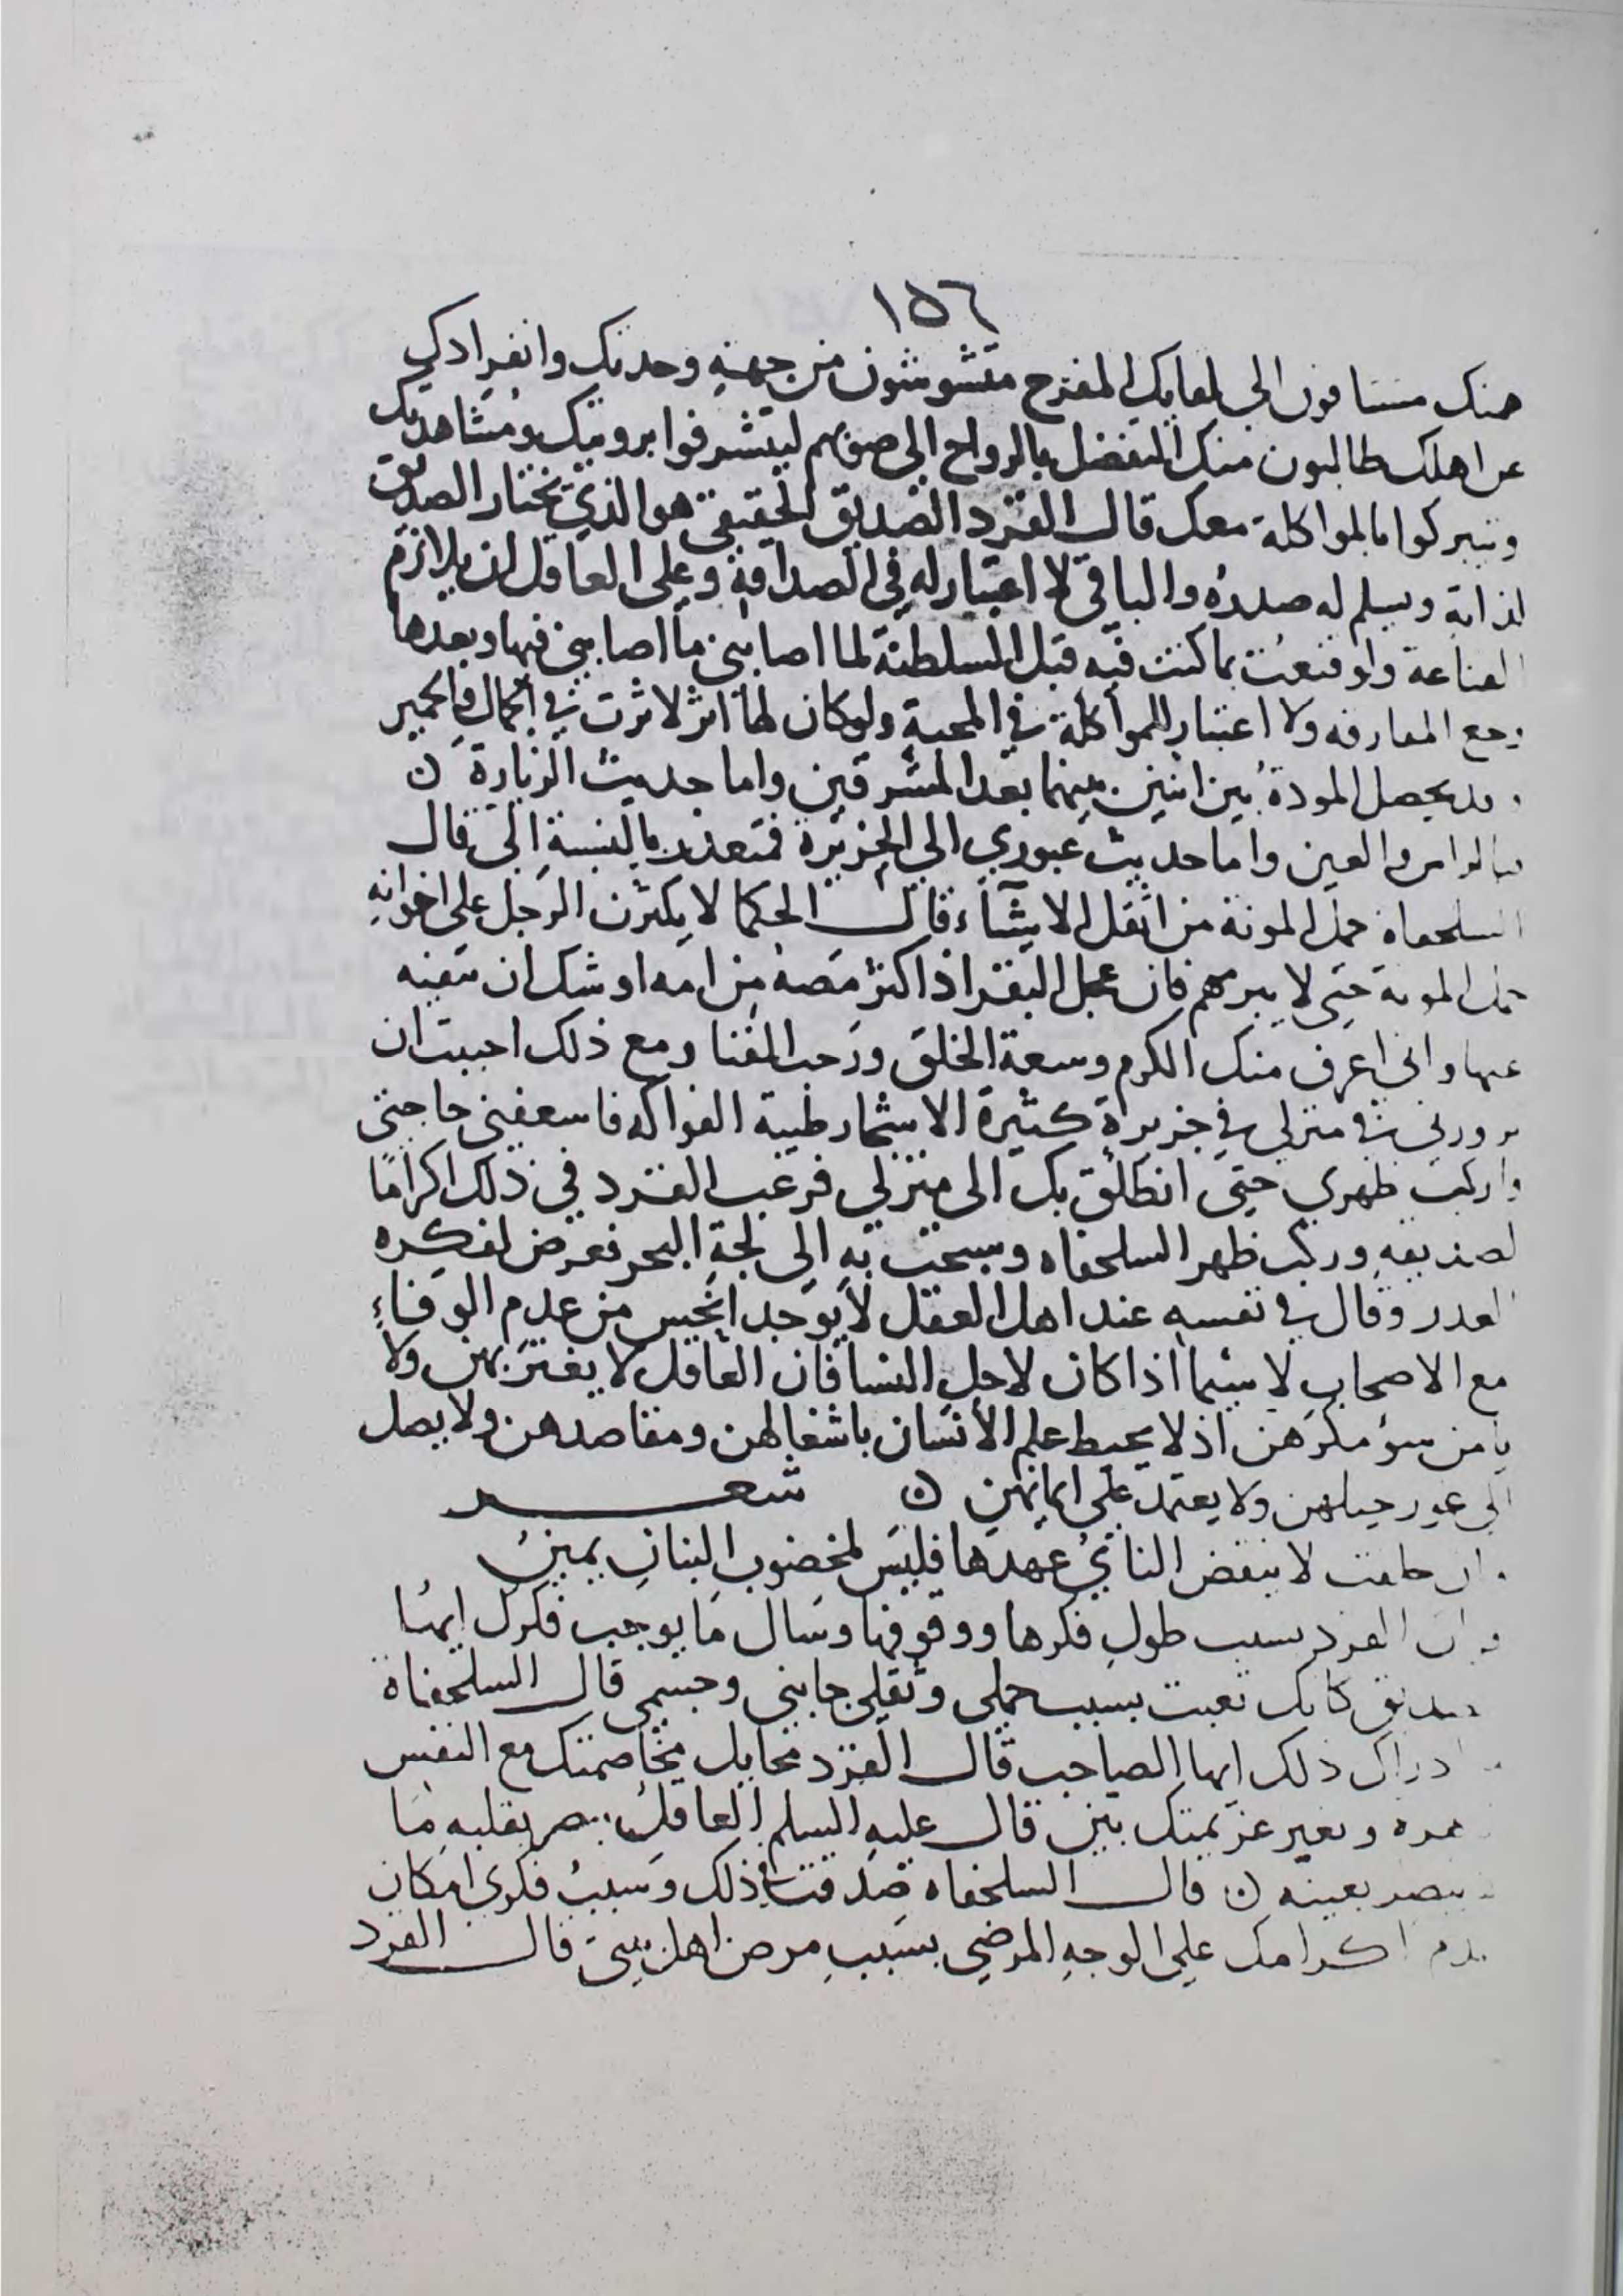 ١٥٦
منك مشتاقون الي لقايك المفرح متشوشون من جهة وحدتك وانفرادك
عن اهلك طالبون منك التفضل بالرواح الي صوبهم ليتشرفوا برويتك ومشاهدتك
ويتبركوا بالمواكلة معك قال القرد الصديق الحقيقي هو الذي يختار الصديق
لذاته ويسلم له صدره والباقي لا اعتبار له في الصداقة وعلي العاقل ان يلازم
القناعة ولو قنعت بما كنت فيه قبل السلطنة لما اصابني ما اصابني فيها وبعدها
ومع المعارفه ولا اعتبار للمواكلة في المحبة ولو كان لها اثر لاثرت في الجمال والحمير
وقد يحصل المودة بين اثنين بينهما بعد المشرقين واما حديث الزيارة ن
فبالراس والعين واما حديث عبوري الي الجزيرة فمتعذر بالنسبة الي قال
السلحفاة حمل المونة من اثقل الاشياء قال الحكما لا يكثرن الرجل علي اخوانه
حمل المونة حتي لا يبرمهم فان عجل البقر اذا اكثر مصه من امه اوشك ان تنفيه
عنها واني اعرف منك الكرم وسعة الخلق ورحب الفنا ومع ذلك احببت ان
تزورني في منزلي في جزيرة كثيرة الاشجار طيبة الفواكه فاسعفني حاجتي
واركب ظهري حتي انطلق بك الي منزلي فرغب القرد في ذلك اكرامًا
لصديقه وركب ظهر السلحفاه وسبحت به الي لجة البحر فعرض لفكره
الغدر وقال في نفسه عند اهل العقل لا يوجد انحس من عدم الوفاء
مع الاصحاب لا سيما اذا كان لاجل النسا فان العاقل لا يغتر بهن ولا
يامن سو مكرهن اذ لا يحيط علم الانسان باشغالهن ومقاصدهن ولا يصل
الي غور حيلهن ولا يعتمد علي ايمانهن ن شعر
وان حلفت لا ينقض الناي عهدها فليس لمخضوب البنان يمين
القرد بسبب طول فكرها ووقوفها وسال ما يوجب فكرك ايها
الصديق كانك تعبت بسبب حملي وثقلي جانبي وجسمي قال السلحفاة
ادراك ذلك ايها الصاحب قال القرد مخايل مخاصمتك مع النفس
وتغير عزيمتك بين قال عليه السلم العاقل يبصر بقلبه ما
يبصر بعينه ن قال السلحفاه صدقت في ذلك وسبب فكري امكان
عدم اكرامك علي الوجه المرضي بسبب مرض اهل بيتي قال القرد